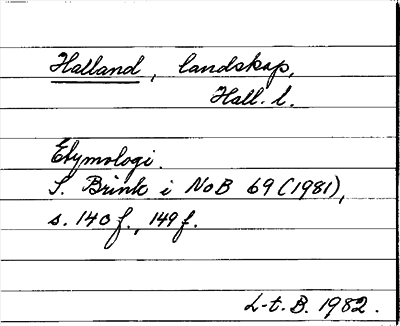 Halland, landskap,
Hall. l.
Etymologi.
S. Brink i NoB 69 (1981),
s. 140 f., 149 f.
L-t. B. 1982.